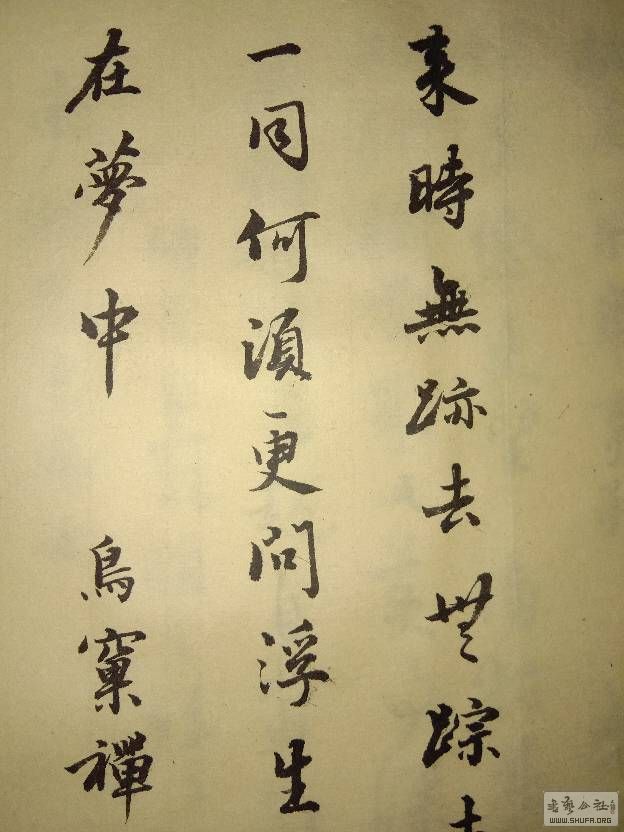 來時無跡去無踪
一同何須更問浮生
在夢中 鳥窠禪
WWW.SHUFA.ORG